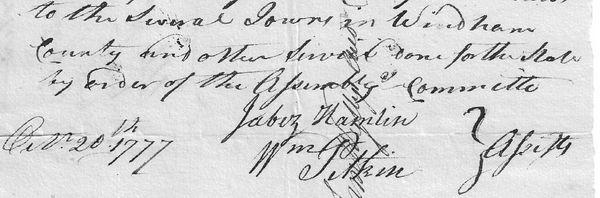 to the Several Towns in Windham
County and other Servis done for the State
by order of the Assembly Committe
Jabez Hamlin
Octr. 20th. 1777 Wm Pitkin Assists